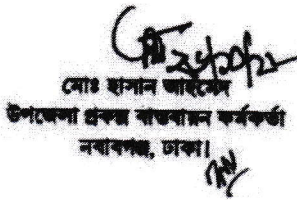 মোঃ হাসান আহমেদ
উপজেলা প্রকল্প বাস্তবায়ন কর্মকর্তা
নবাবগঞ্জ, ঢাকা।